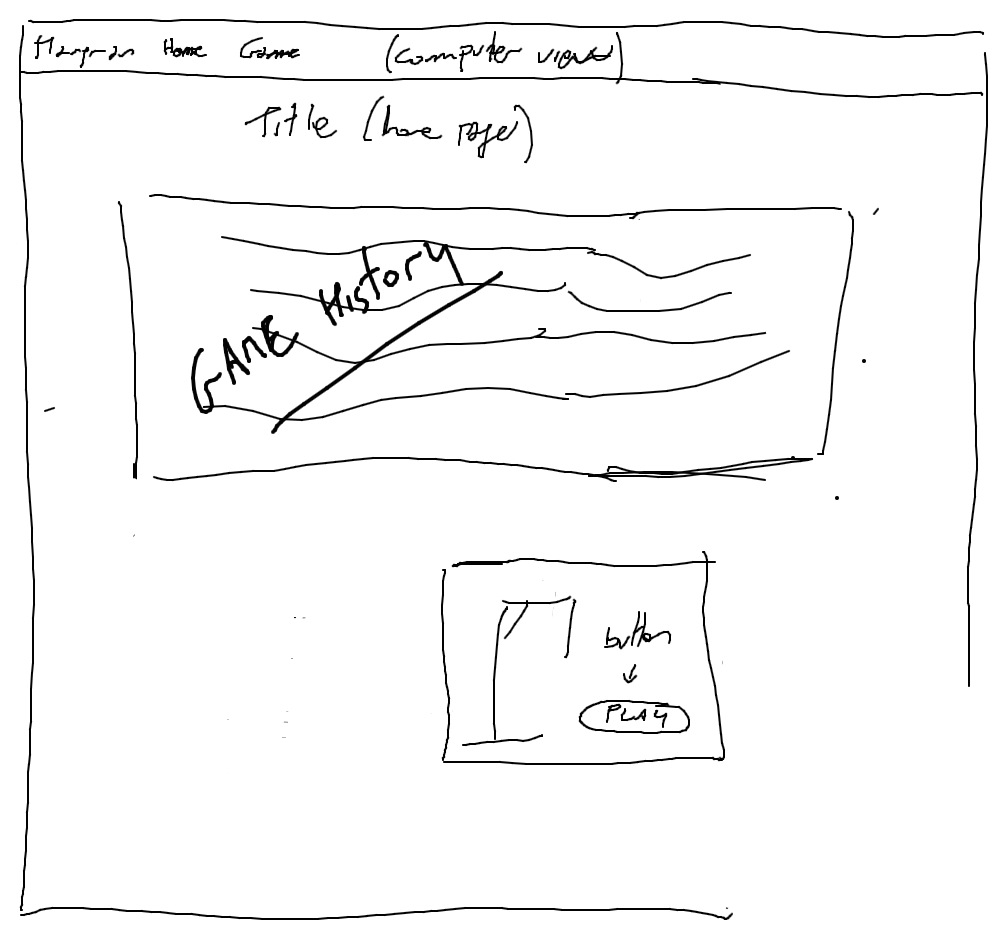 Hangman Home Game (computer view)
Title (home page)
GAME HISTORY
button
PLAY